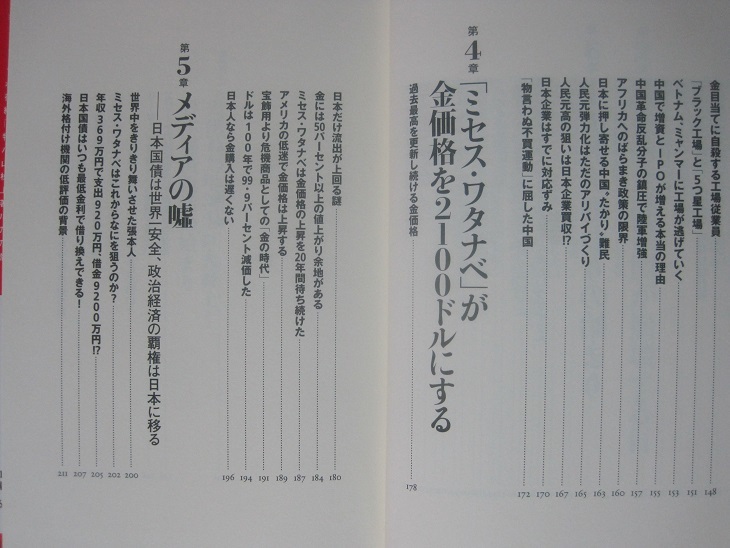 金目当てに自殺する工場従業員 148
「ブラック工場」と「5つ星工場」 151
ベトナム・ミャンマーに工場が逃げていく 153
中国で増資とIPOが増える本当の理由 155
中国革命反乱分子の鎮圧で陸軍増強 157
アフリカへのばらまき政策の限界 160
日本に押し寄せる中国“たかり”難民 163
人民元弾力化はただのアリバイづくり 165
人民元高の狙いは日本企業買収!? 167
日本企業はすでに対応ずみ 170
「物言わぬ不買運動」に屈した中国 172
第4章 「ミセス・ワタナベ」が
金価格を2100ドルにする
過去最高を更新し続ける金価格 178
日本だけ流出が上回る謎 180
金には50パーセント以上の値上がり余地がある 184
ミセス・ワタナベは金価格の上昇を20年間待ち続けた 187
アメリカの低迷で金価格は上昇する 189
宝飾用より危機商品としての「金の時代」 191
ドルは100年で99・9パーセント減価した 194
日本人なら金購入は遅くない 196
第5章 メディアの嘘
――日本国債は世界一安全、政治経済の覇権は日本に移る
世界中をきりきり舞いさせた張本人 200
ミセス・ワタナベはこれからなにを狙うのか? 202
年収369万円で支出920万円、借金9200万円!? 205
日本国債はいつも最低金利で借り換えできる! 207
海外格付け機関の低評価の背景 211